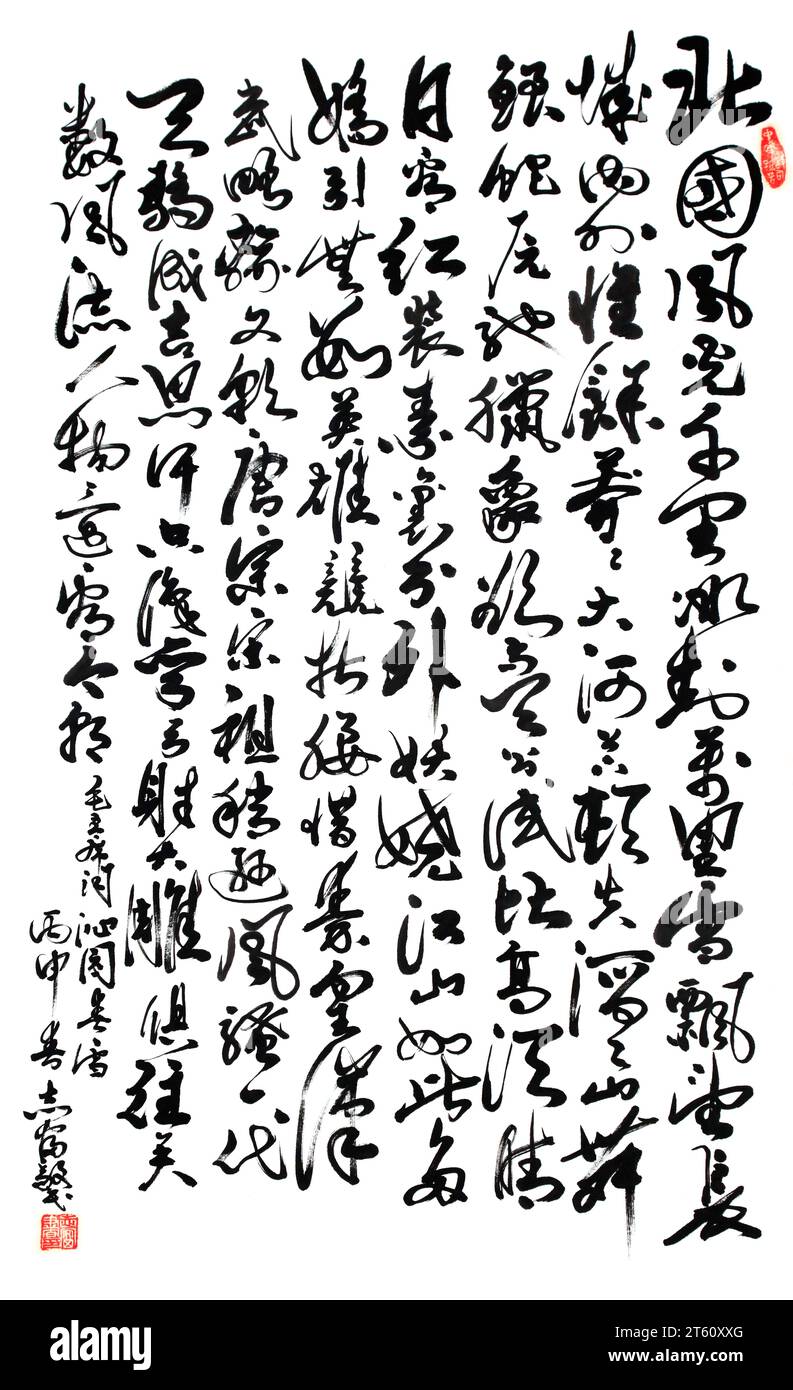 北國風光千里冰封萬里雪飄望長
城內外惟餘莽〻大河上下頓失滔〻山舞
銀蛇原馳臘象欲與天公試比高須晴
日看紅裝素裹分外妖嬈江山如此多
嬌引無數英雄競折腰惜秦皇漢
武略輸文采唐宗宋祖稍遜風騷一代
天驕成吉思汗只識彎弓射大雕俱往矣
數風流人物還看今朝 毛主席詞沁園春雪
丙申春志富
alamy
Image ID: 2T60XXG
www.alamy.com